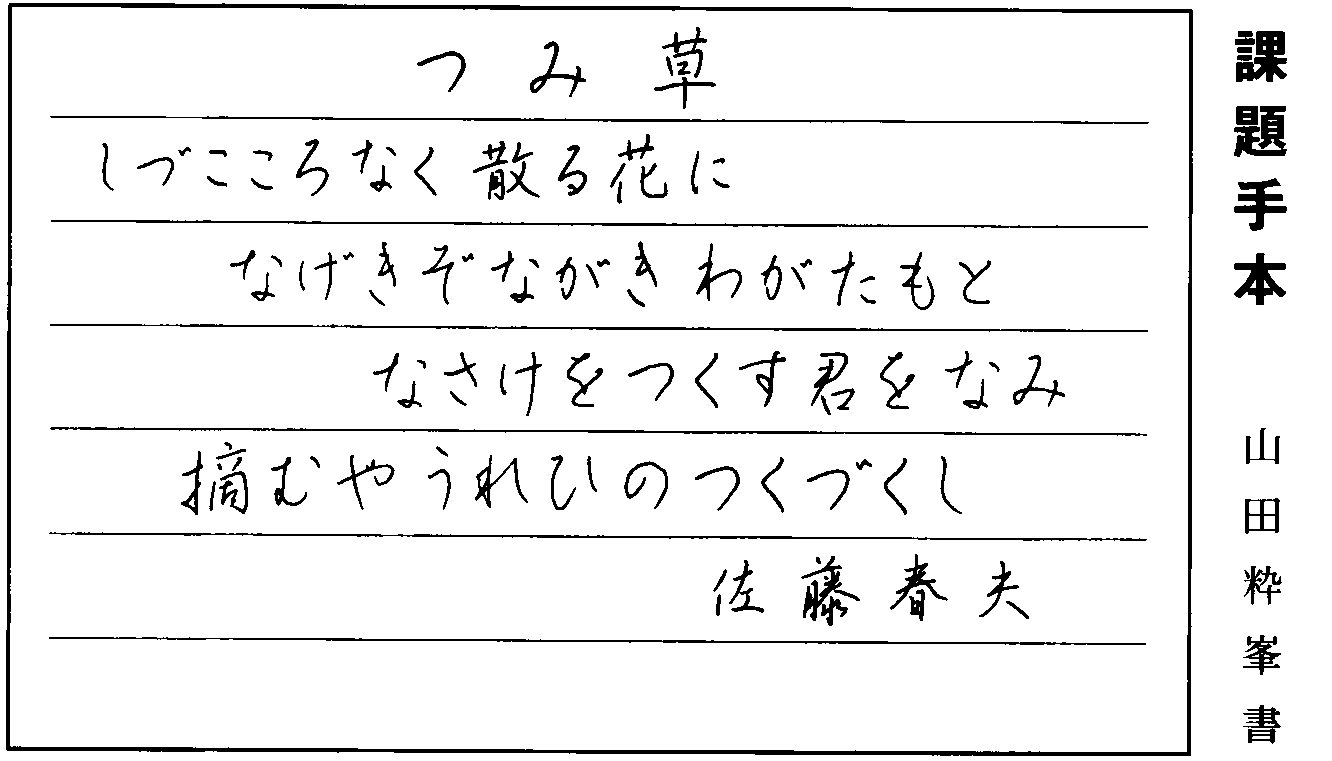 つみ草
しづこころなく散る花に
なげきぞながきわがたもと
なさけをつくす君をなみ
摘むやうれひのつくづくし
佐藤春夫
課題手本 山田粋峯書